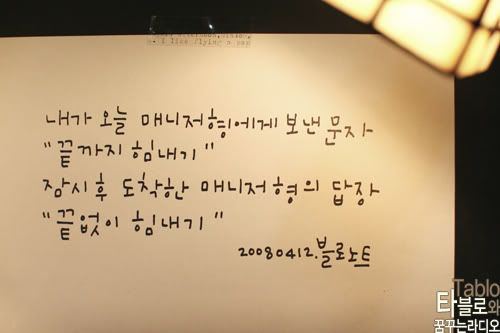 I like flying a
내가 오늘 매니저형에게 보낸 문자
"끝까지 힘내기"
잠시후 도착한 매니저형의 답장
"끝없이 힘내기"
20080412.블로노트
Tablo
타블로와
꿈꾸는라디오